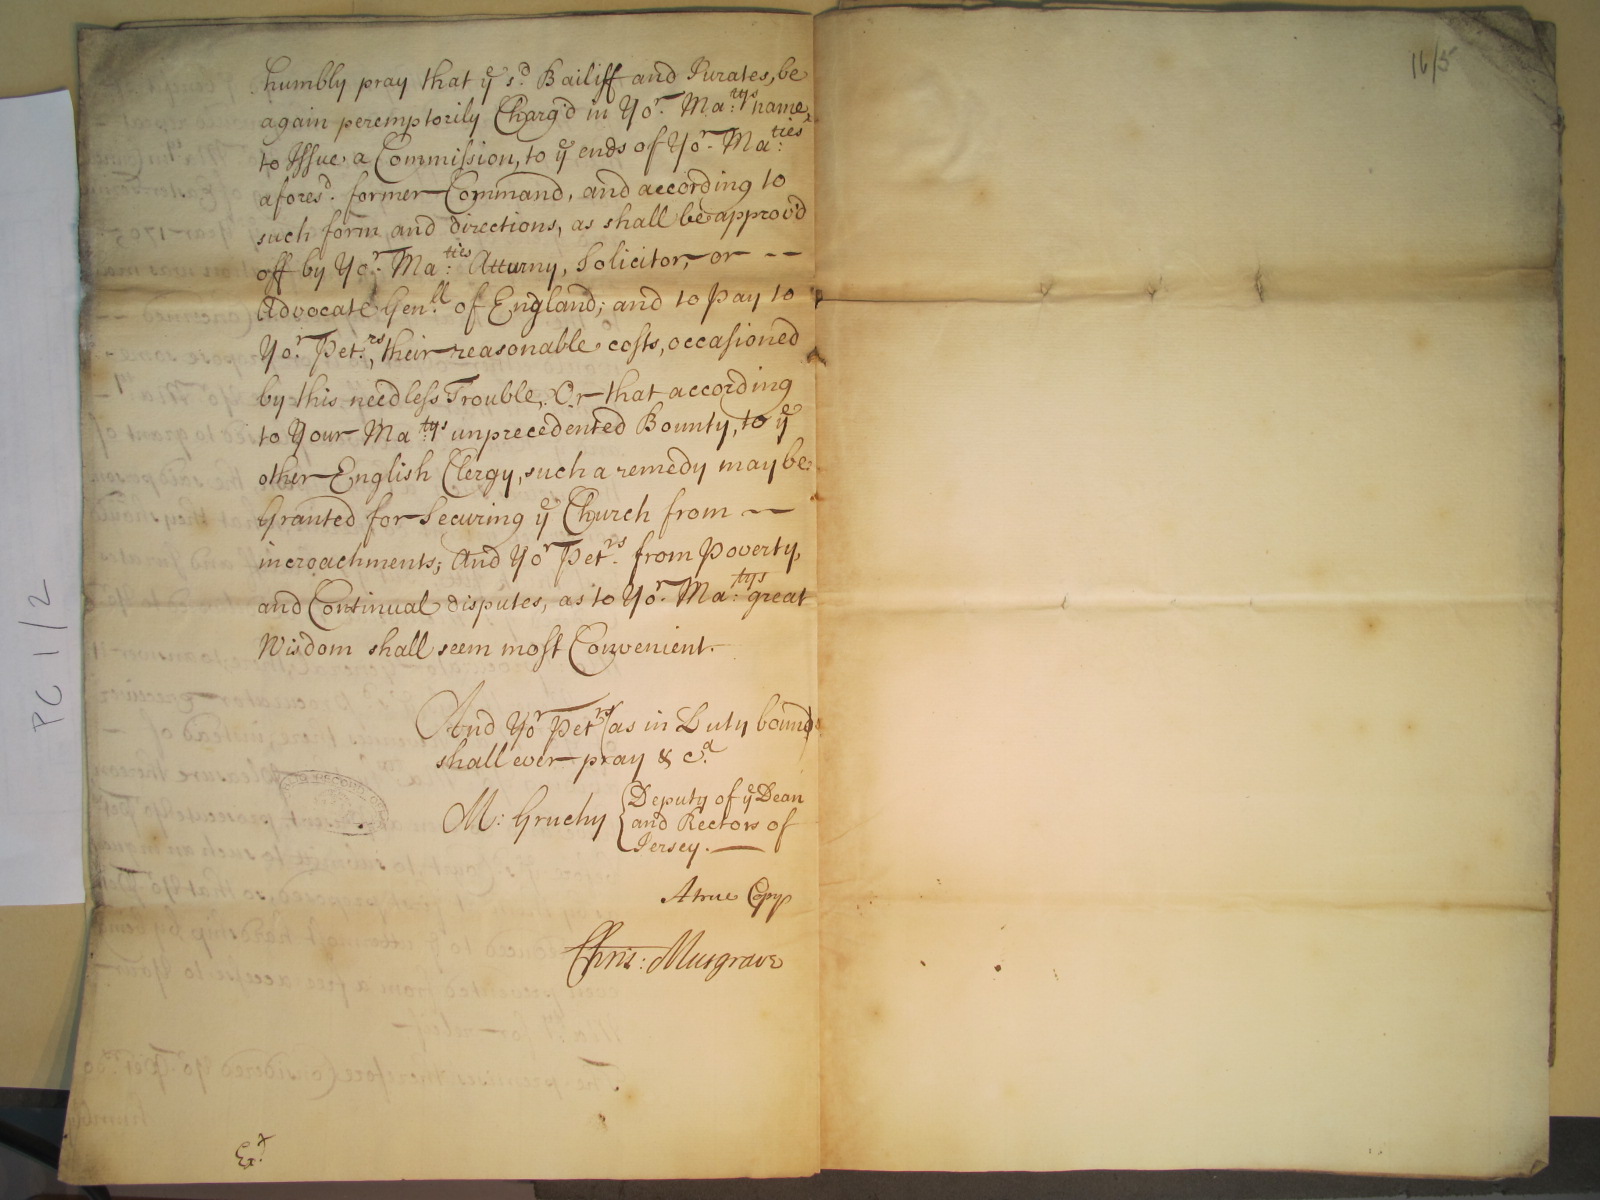 humbly pray that yᵉ sᵈ Bailiff and Jurates, be
again peremptorily Charg'd in Yoʳ. Ma:ᵗʸˢ name,
to Issue a Commission, to yᵉ ends of Yoʳ. Ma:ᵗⁱᵉˢ
aforesᵈ. former Command, and according to
such form and directions, as shall be approv'd
off by Yoʳ. Ma:ᵗⁱᵉˢ Atturny, Solicitor, or --
Advocate Gen:ˡˡ of England; and to Pay to
Yoʳ. Petʳˢ, their reasonable costs, occasioned
by this needless Trouble, Or that according
to Your Maᵗʸˢ unprecedented Bounty, to yᵉ
other English Clergy, such a remedy may be
Granted for Securing yᵉ Church from --
incroachments; And Yoʳ Petʳˢ. from Poverty,
and Continual disputes, as to Yoʳ. Ma:ᵗʸˢ great
Wisdom shall seem most Convenient.
And Yoʳ Petʳˢ (as in Duty bound)
shall ever pray & cᵃ.
M: Gruchy { Deputy of yᵉ Dean
and Rectors of
Jersey.
A true Copy
Chris: Musgrave
Exᵈ.
16/5
PC 1/2